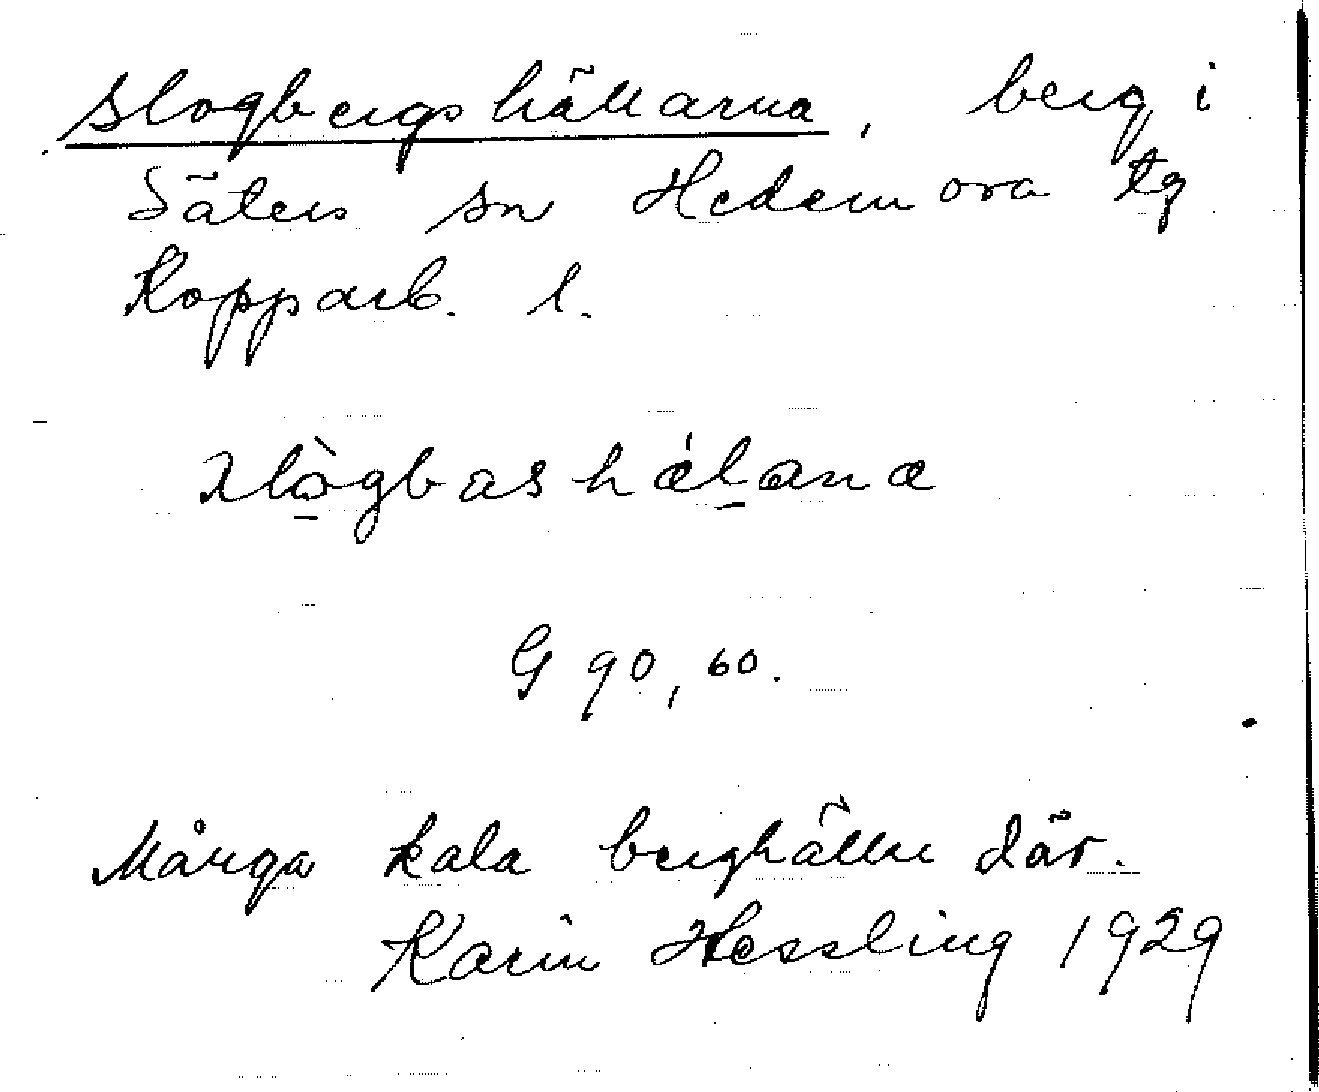 Slogbergshällarna, berg i
Säters sn Hedemora tg
Kopparb. l.
G 90, 60.
Många kala berghällar där.
Karin Hessling 1929